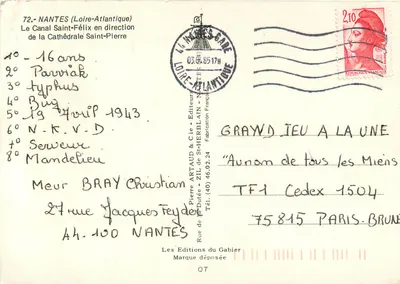 72.- NANTES (Loire-Atlantique)
Le Canal Saint-Félix en direction
de la Cathédrale Saint-Pierre
1° - 16 ans.
2° Parviak
3° typhus
4° Bug
5° 19 Avril 1943
6° N.K.V.D.
7° Serveur
8° Mandelieu
Meur BRAY Christian
27 rue Jacques Feyder
44-100 NANTES
44 NANTES-GARE
LOIRE-ATLANTIQUE
2,10
Pierre ARTAUD & Cie - Editeur
Rue de la Dutée - ZIL de St-HERBLAIN - NANTES
Tél. (40) 46.02.24
Fabrication Française
GRAND JEU A LA UNE
"Au nom de tous les Miens
TF1 Cedex 1504
75815 PARIS-BRUNE
Les Editions du Gabier
Marque déposée